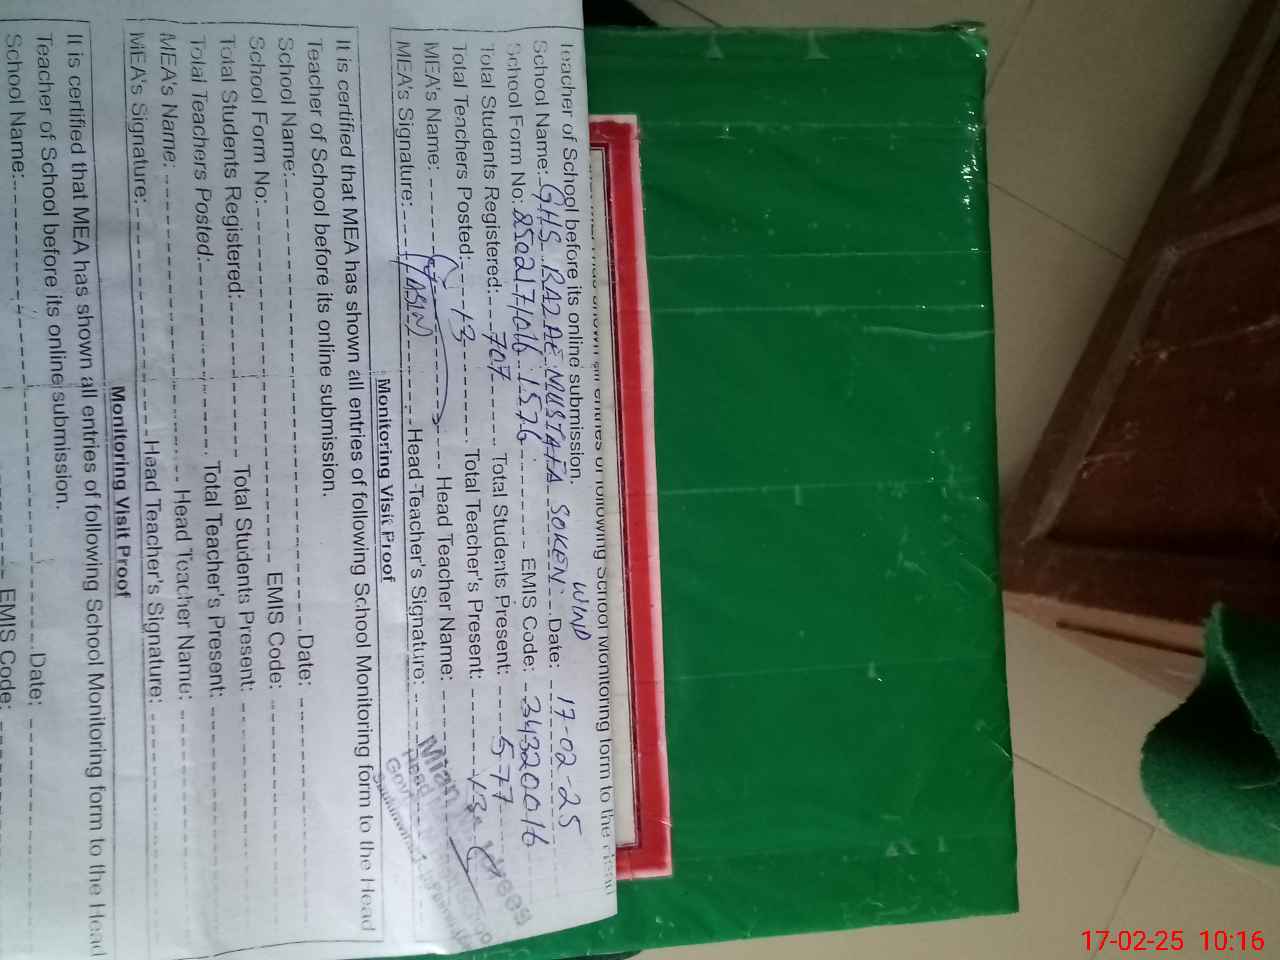 Teacher of School before its online submission.
School Name: GHS RAZAE MUSTAFA SOKEN WND Date: 17-02-25
School Form No: EMIS Code: 34320016
Total Students Registered: 707 Total Students Present: 577
Total Teachers Posted: 13 Total Teacher's Present: 13
MEA's Name: Head Teacher Name:
MEA's Signature: Head Teacher's Signature:
Mian
Monitoring Visit Proof
It is certified that MEA has shown all entries of following School Monitoring form to the Head
Teacher of School before its online submission.
School Name: Date:
School Form No: EMIS Code:
Total Students Registered: Total Students Present:
Total Teachers Posted: Total Teacher's Present:
MEA's Name: Head Teacher Name:
MEA's Signature: Head Teacher's Signature:
Monitoring Visit Proof
It is certified that MEA has shown all entries of following School Monitoring form to the Head
Teacher of School before its online submission.
School Name: Date:
EMIS Code:
17-02-25 10:16